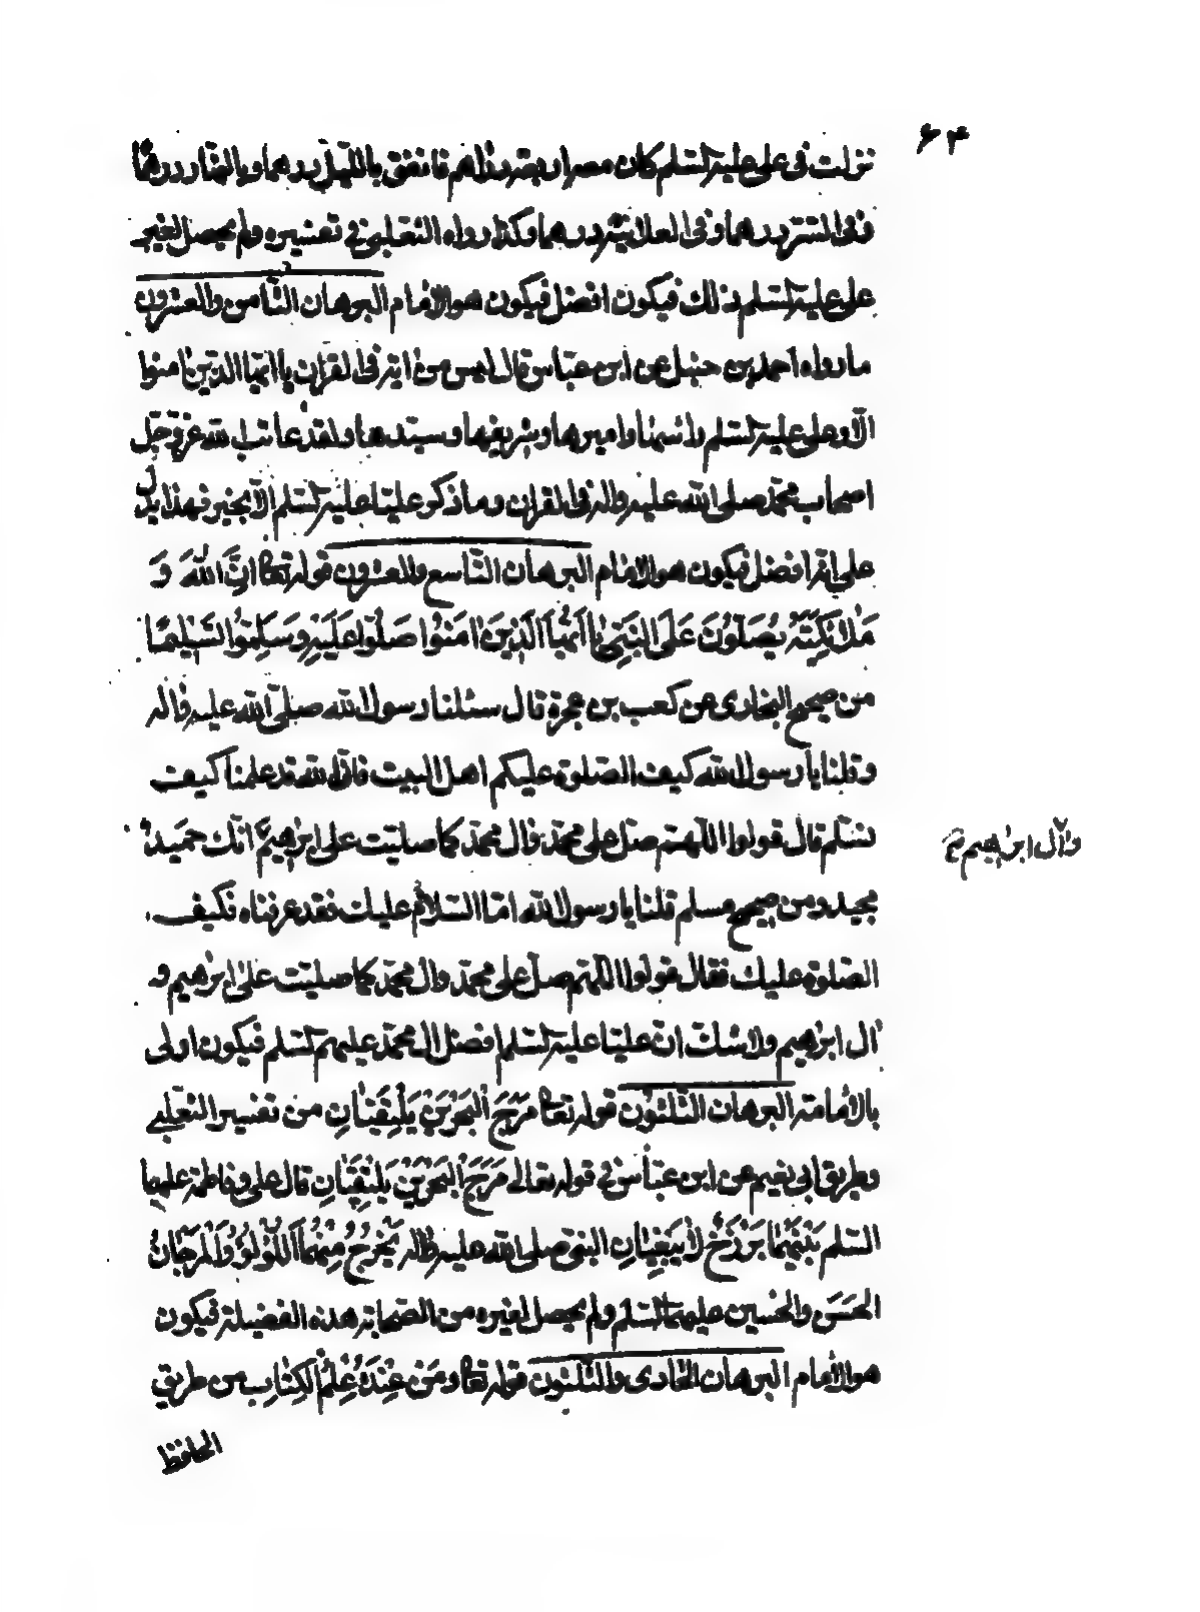 ۶۴
نزلت فى على عليه السلم كان معه اربعة دراهم فانفق بالليل درهما وبالنهار درهما
وفى السر درهما وفى العلانية درهما وكذا رواه الثعلبى فى تفسيره ولم يحصل لغير
على عليه السلم ذلك فيكون افضل فيكون هو الامام البرهان الثامن والعشرون
ما رواه احمد بن حنبل عن ابن عباس قال ليس من اية فى القران يا ايها الذين امنوا
الا وعلى عليه السلم راسها واميرها وشريفها وسيدها ولقد عاتب الله عز وجل
اصحاب محمد صلى الله عليه واله فى القران وما ذكر عليا عليه السلم الا بخير فهذا يدل
على انه افضل فيكون هو الامام البرهان التاسع والعشرون قوله تعا اِنَّ اللهَ وَ
مَلائِكَتَهُ يُصَلّوُنَ عَلَى النَبِىِّ يا اَيُّهَا الَّذينَ امَنوُا صَلّوُا عَلَيْهِ وَسَلِّمُوا تَسْليمًا
من صحيح البخارى عن كعب بن عجرة قال سئلنا رسول الله صلى الله عليه واله
وقلنا يا رسول الله كيف الصلوة عليكم اهل البيت فان الله قد علمنا كيف
نسلم قال قولوا اللهم صل على محمد وال محمد كما صليت على ابرهيم انك حميد
وال ابرهيم
مجيد ومن صحيح مسلم قلنا يا رسول الله اما السلام عليك فقد عرفناه فكيف
الصلوة عليك فقال قولوا اللهم صل على محمد وال محمد كما صليت على ابرهيم و
ال ابرهيم ولا شك ان عليا عليه السلم افضل ال محمد عليهم السلم فيكون اولى
بالامامة البرهان الثلثون قوله تعا مَرَجَ الْبَحْرَيْنِ يَلْتَقِيانِ من تفسير الثعلبى
وطريق ابى نعيم عن ابن عباس فى قوله تعالى مَرَجَ الْبَحْرَيْنِ يَلْتَقِيانِ قال على وفاطمة عليهما
السلم بَيْنَهُما بَرْزَخٌ لا يَبْغِيانِ النبى صلى الله عليه واله يَخْرُجُ مِنْهُمَا اللُّؤْلُؤُ وَالْمَرْجانُ
الحسَنَ والحسين عليهما السلم ولم يحصل لغيره من الصحابة هذه الفضيلة فيكون
هو الامام البرهان الحادى والثلثون قوله تعا ومَنْ عِنْدَهُ عِلْمُ الْكِتابِ من طريق
الحافظ